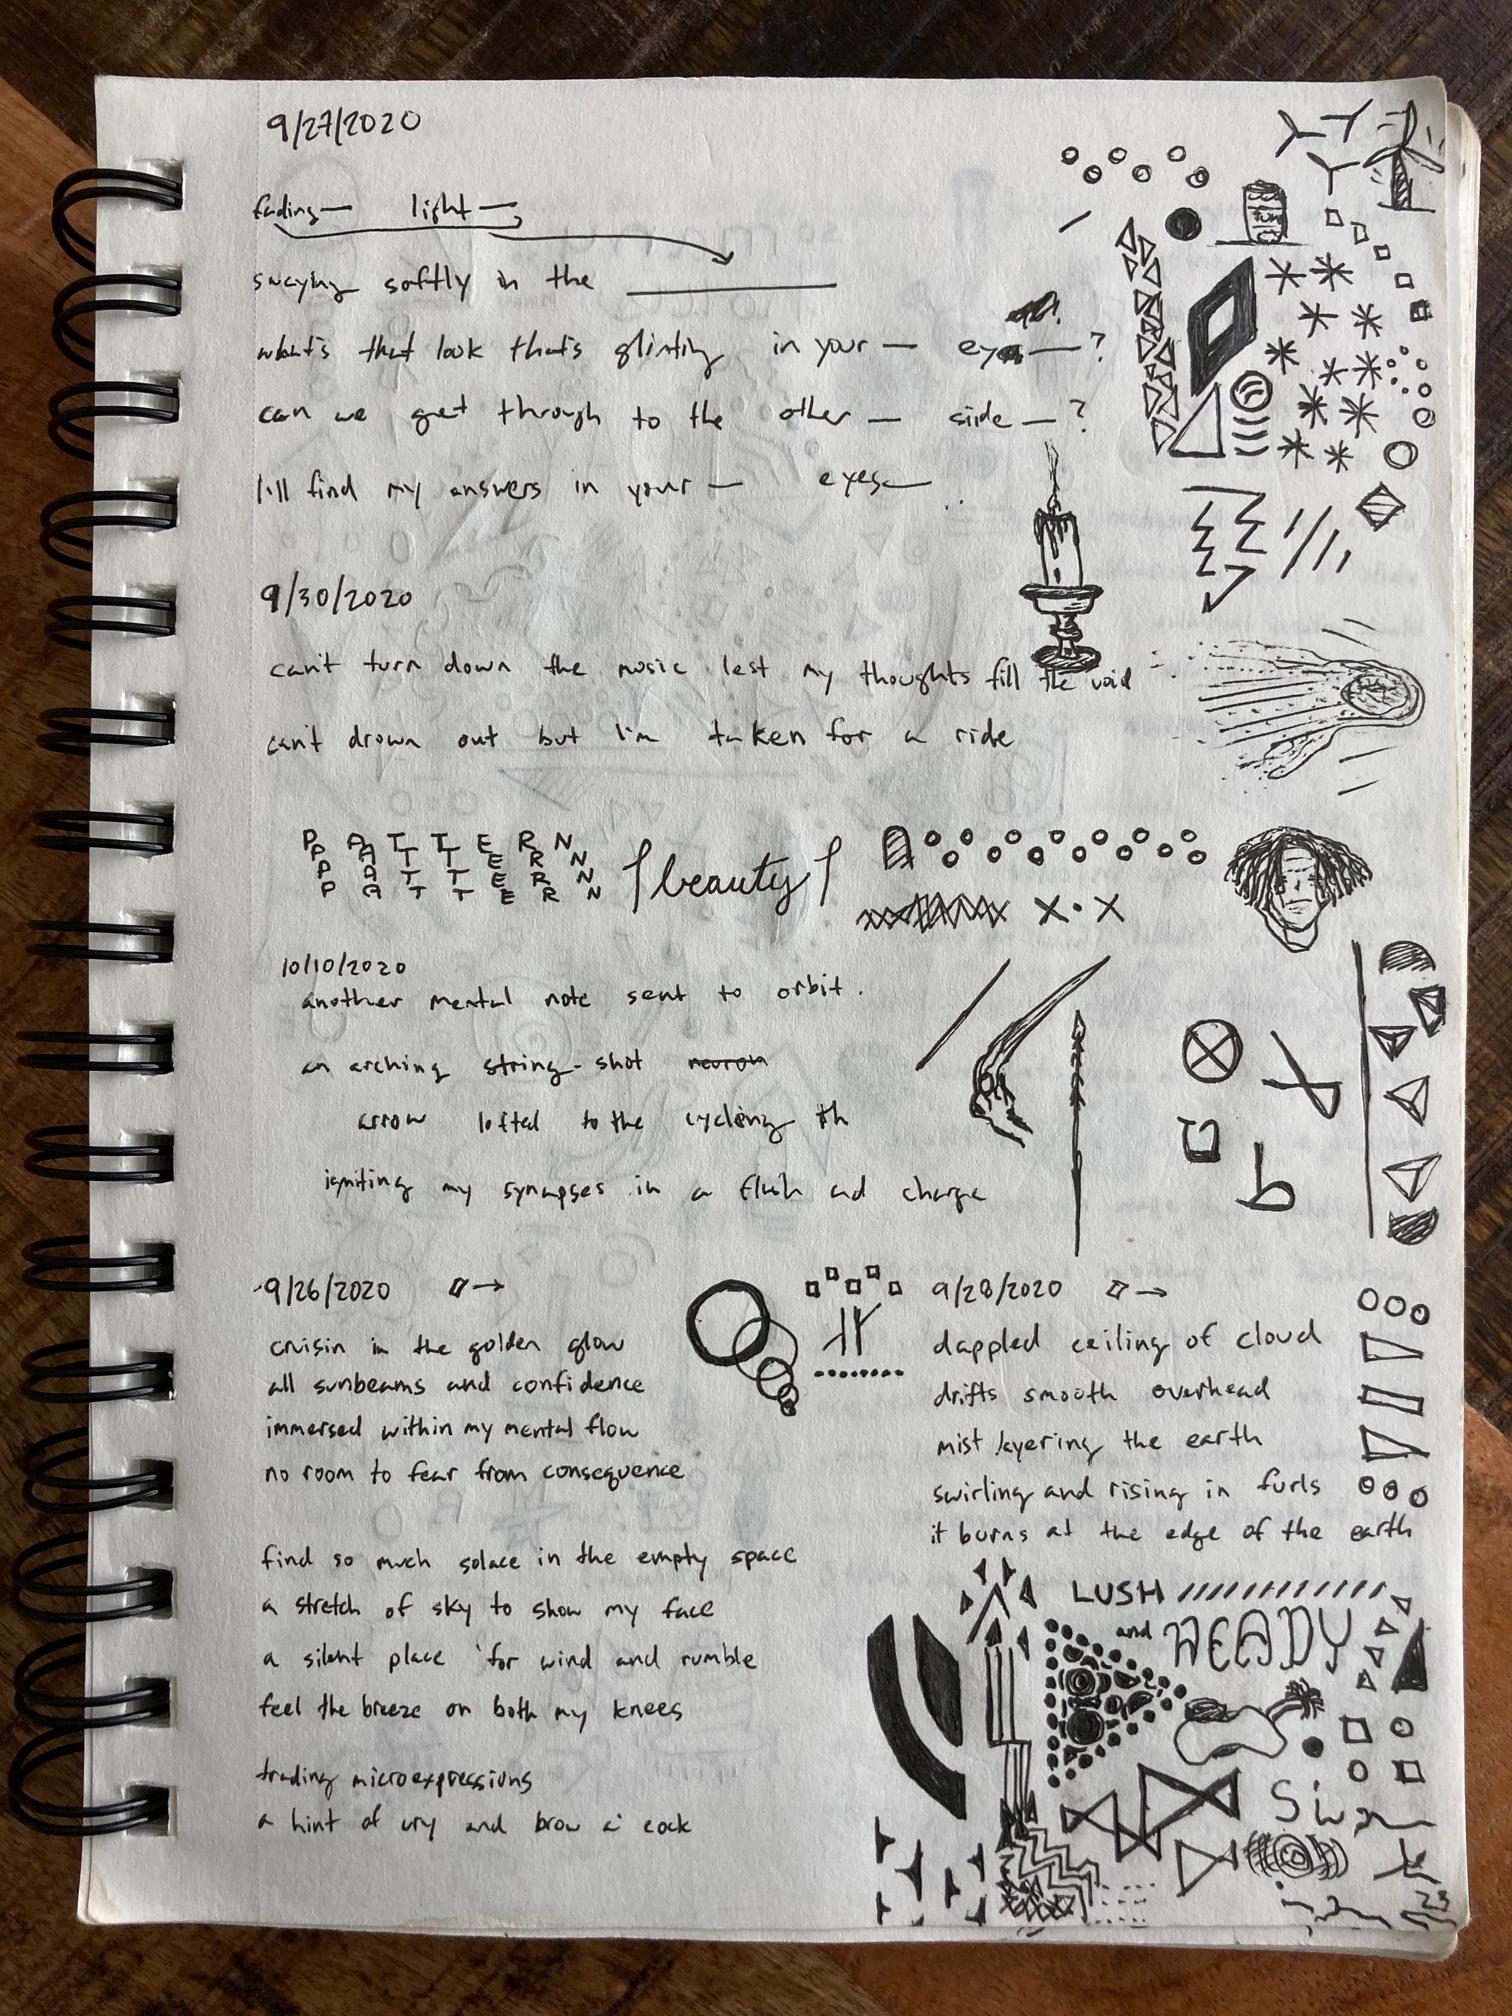 9/27/2020
fading— light—,
swaying softly in the ________
what's that look that's glinting in your— eye—?
can we get through to the other— side—?
I'll find my answers in your— eyes—
9/30/2020
can't turn down the music lest my thoughts fill the void
can't drown out but I'm taken for a ride
P A T T E R N
P A T T E R N
P A T T E R N
P A T T E R N
beauty
10/10/2020
another mental note sent to orbit.
an arching string-shot neuron
arrow lofted to the cycling th
igniting my synapses in a flush and charge
9/26/2020 →
cruisin in the golden glow
all sunbeams and confidence
immersed within my mental flow
no room to fear from consequence
find so much solace in the empty space
a stretch of sky to show my face
a silent place for wind and rumble
feel the breeze on both my knees
trading microexpressions
a hint of wry and brow a' cock
9/28/2020 →
dappled ceiling of cloud
drifts smooth overhead
mist layering the earth
swirling and rising in furls
it burns at the edge of the earth
LUSH
and HEADY
23